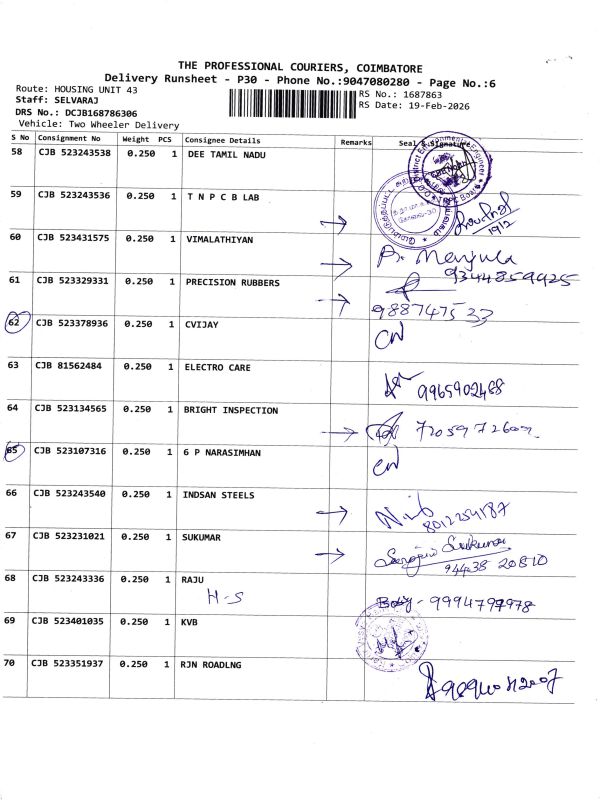 THE PROFESSIONAL COURIERS, COIMBATORE
Delivery Runsheet - P30 - Phone No.:9047080280 - Page No.:6
Route: HOUSING UNIT 43
RS No.: 1687863
Staff: SELVARAJ
RS Date: 19-Feb-2026
DRS No.: DCJB168786306
Vehicle: Two Wheeler Delivery
S No Consignment No Weight PCS Consignee Details Remarks Seal & Signature
58 CJB 523243538 0.250 1 DEE TAMIL NADU
59 CJB 523243536 0.250 1 T N P C B LAB
19/2
60 CJB 523431575 0.250 1 VIMALATHIYAN
Manjula
9344859425
61 CJB 523329331 0.250 1 PRECISION RUBBERS
9887475 33
62 CJB 523378936 0.250 1 CVIJAY
CN
63 CJB 81562484 0.250 1 ELECTRO CARE
9965902488
64 CJB 523134565 0.250 1 BRIGHT INSPECTION
65 CJB 523107316 0.250 1 6 P NARASIMHAN
CN
66 CJB 523243540 0.250 1 INDSAN STEELS
8012254187
67 CJB 523231021 0.250 1 SUKUMAR
Sukumar
94438 20810
68 CJB 523243336 0.250 1 RAJU
H-S
9994797978
69 CJB 523401035 0.250 1 KVB
70 CJB 523351937 0.250 1 RJN ROADLNG